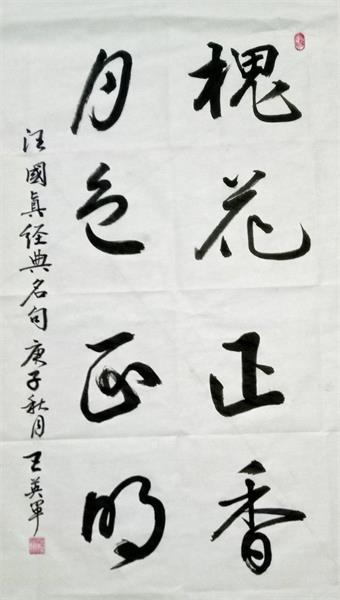 槐花正香
月色正明
汪國真经典名句庚子秋月王英軍